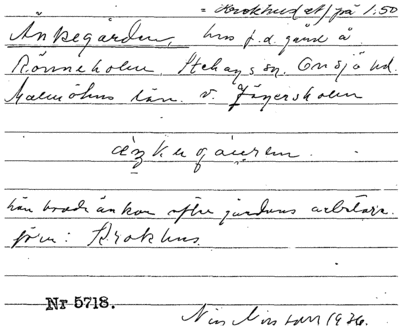 = Krokhus(et) på 1:50
Änkegården, hus f.d. gård å
Rönneholm. Stehags sn. Onsjö hd.
Malmöhus län. v. Jägersholm
här bodde änkor efter gårdens arbetare.
jfr: Krokhus.
Nr 5718.
Nils Nilsson 1926.